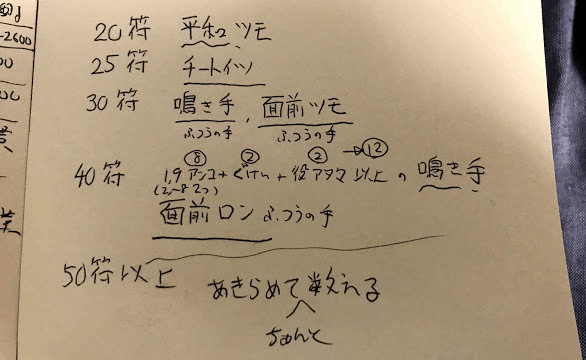 -2600
20符 平和ツモ
25符 チートイツ
30符 鳴き手, 面前ツモ
ふつうの手 ふつうの手
⑧ ② ② → ⑫
40符 1,9アンコ+ぐけい+役アタマ以上の鳴き手
(2~8 2つ)
面前ロン ふつうの手
50符以上 あきらめて数える
ちゃんと